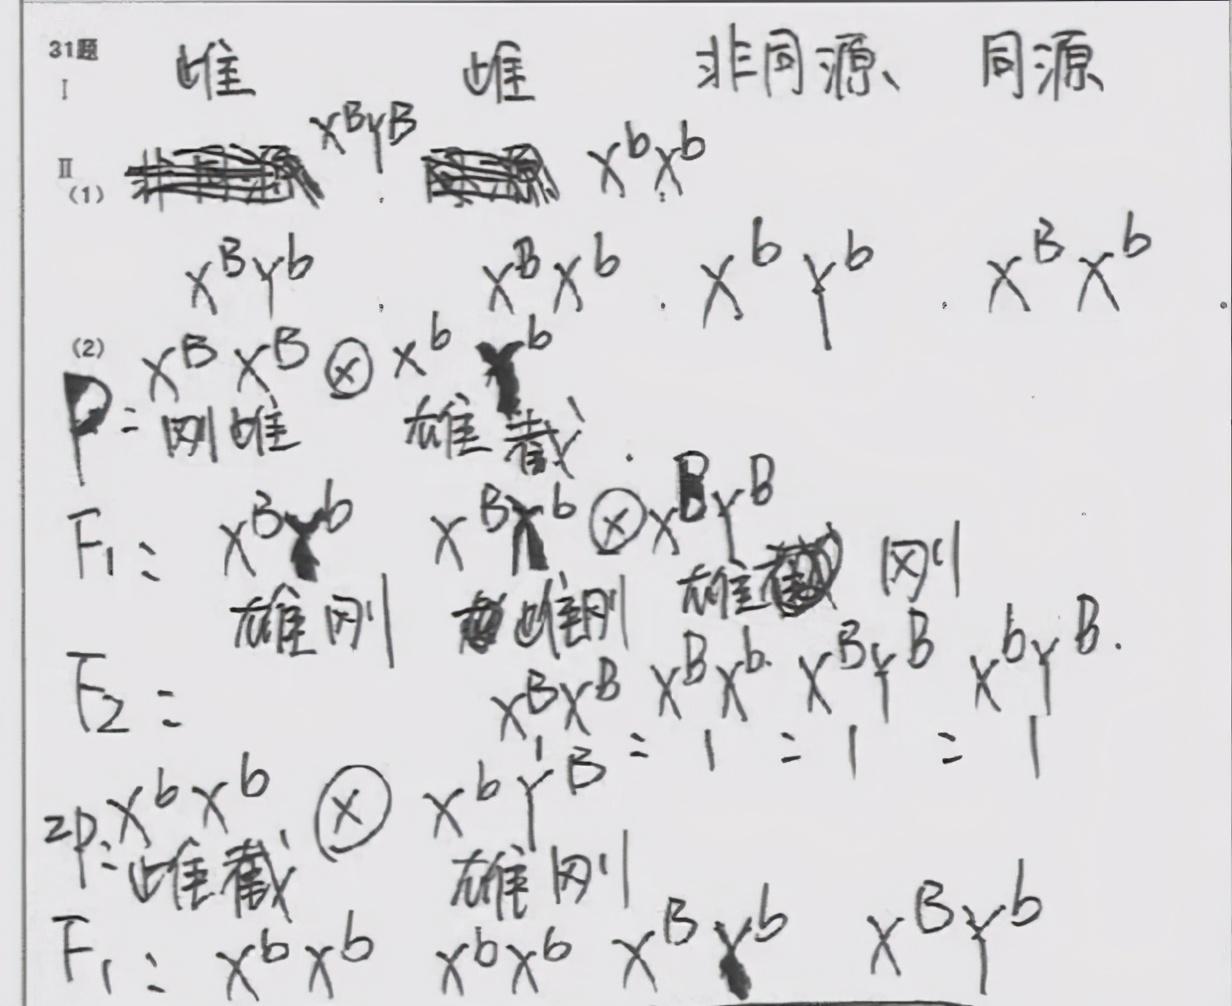 31题
I 雌 雌 非同源、 同源
II X^BY^B X^bX^b
(1)
X^BY^b . X^BX^b . X^bY^b . X^BX^b .
(2) X^BX^B ⊗ X^bY^b
P: 刚雌 雄截
F₁: X^BY^b X^BX^b ⊗ X^BY^B
雄刚 雌刚 雄 刚
F₂: X^BX^B X^BX^b X^BY^B X^bY^B.
1 : 1 : 1 : 1
2P: X^bX^b ⊗ X^bY^B
雌截 雄刚
F₁: X^bX^b X^bX^b X^BY^b X^BY^b